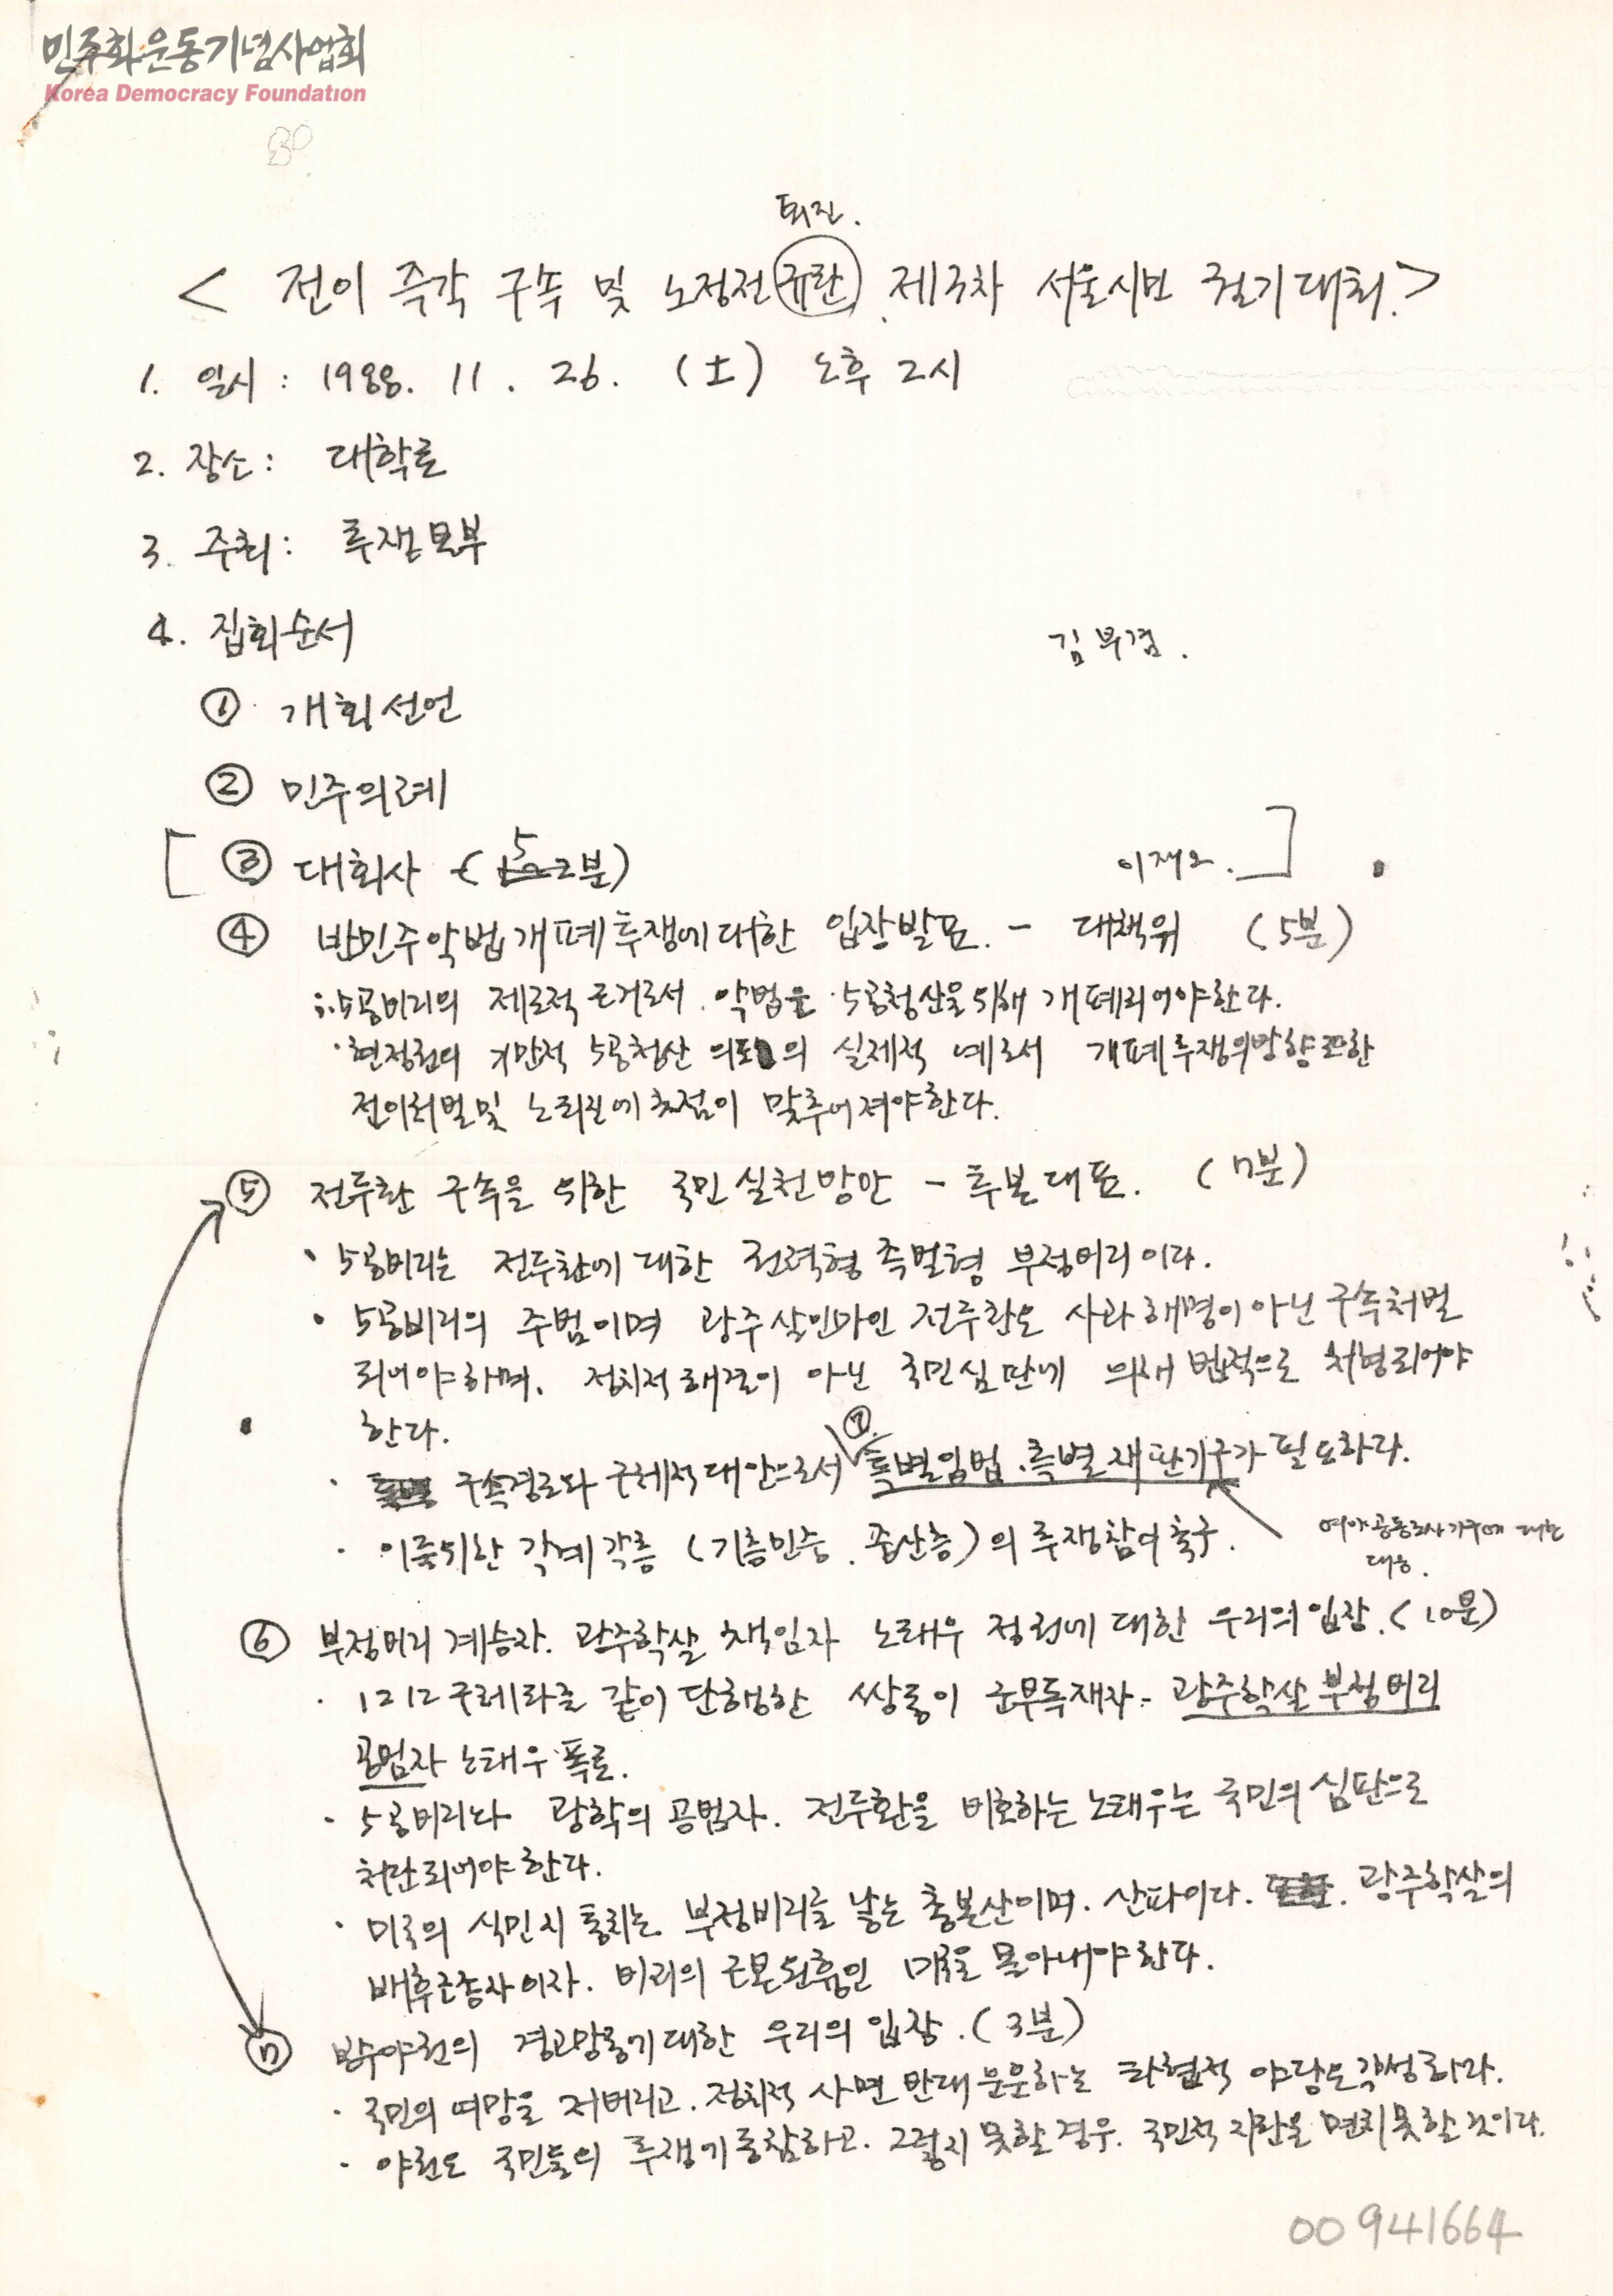 민주화운동기념사업회
Korea Democracy Foundation
퇴진.
< 전이 즉각 구속 및 노정전 규탄. 제3차 서울시민 궐기대회.>
1. 일시 : 1988. 11. 26. (土) 오후 2시
2. 장소 : 대학로
3. 주최 : 투쟁본부
4. 집회순서
김부겸.
① 개회선언
② 민주의례
[ ③ 대회사 - ( 5 분) 이재오. ]
④ 반민주악법개폐투쟁에대한 입장발표. - 대책위 (5분)
5공비리의 제도적 근거로서. 악법은 5공청산을위해 개폐되어야한다.
· 현정권의 기만적 5공청산 의 실제적 예로서 개폐투쟁의방향또한
전이처벌및 노퇴진에초점이 맞추어져야한다.
⑤ 전두환 구속을 위한 국민실천방안 - 투본대표. (7분)
· 5공비리는 전두환에 대한 권력형 족벌형 부정비리이다.
· 5공비리의 주범이며 광주살인마인 전두환은 사과해명이아닌 구속처벌
되어야하며. 정치적해결이 아닌 국민심판에 의해 법적으로 처형되어야
한다.
⑦
· 구속경로와 구체적대안으로서 특별입법.특별재판기구가 필요하다.
· 이를위한 각계각층 (기층민중. 중산층)의 투쟁참여촉구.
여야공동조사기구에 대한
대응.
⑥ 부정비리계승자. 광주학살 책임자 노태우 정권에 대한 우리의입장. (10분)
· 1212쿠데타를 같이 단행한 쌍둥이 군부독재자 - 광주학살부정비리
공범자 노태우 폭로.
· 5공비리와 광학의 공범자. 전두환을 비호하는 노태우는 국민의 심판으로
처단되어야 한다.
· 미국의 식민지 통치는 부정비리를 낳는 총본산이며. 산파이다. 광주학살의
배후조종자이자. 비리의 근본원흉인 미국을 몰아내야한다.
⑦ 보수야권의 경고망동에대한 우리의 입장. (3분)
· 국민의 여망을 저버리고. 정치적 사면 반대 운운하는 타협적 야당은각성하라.
· 야권은 국민들의 투쟁에동참하고. 그렇지못할경우. 국민적 지탄을 면치못할것이다.
00941664